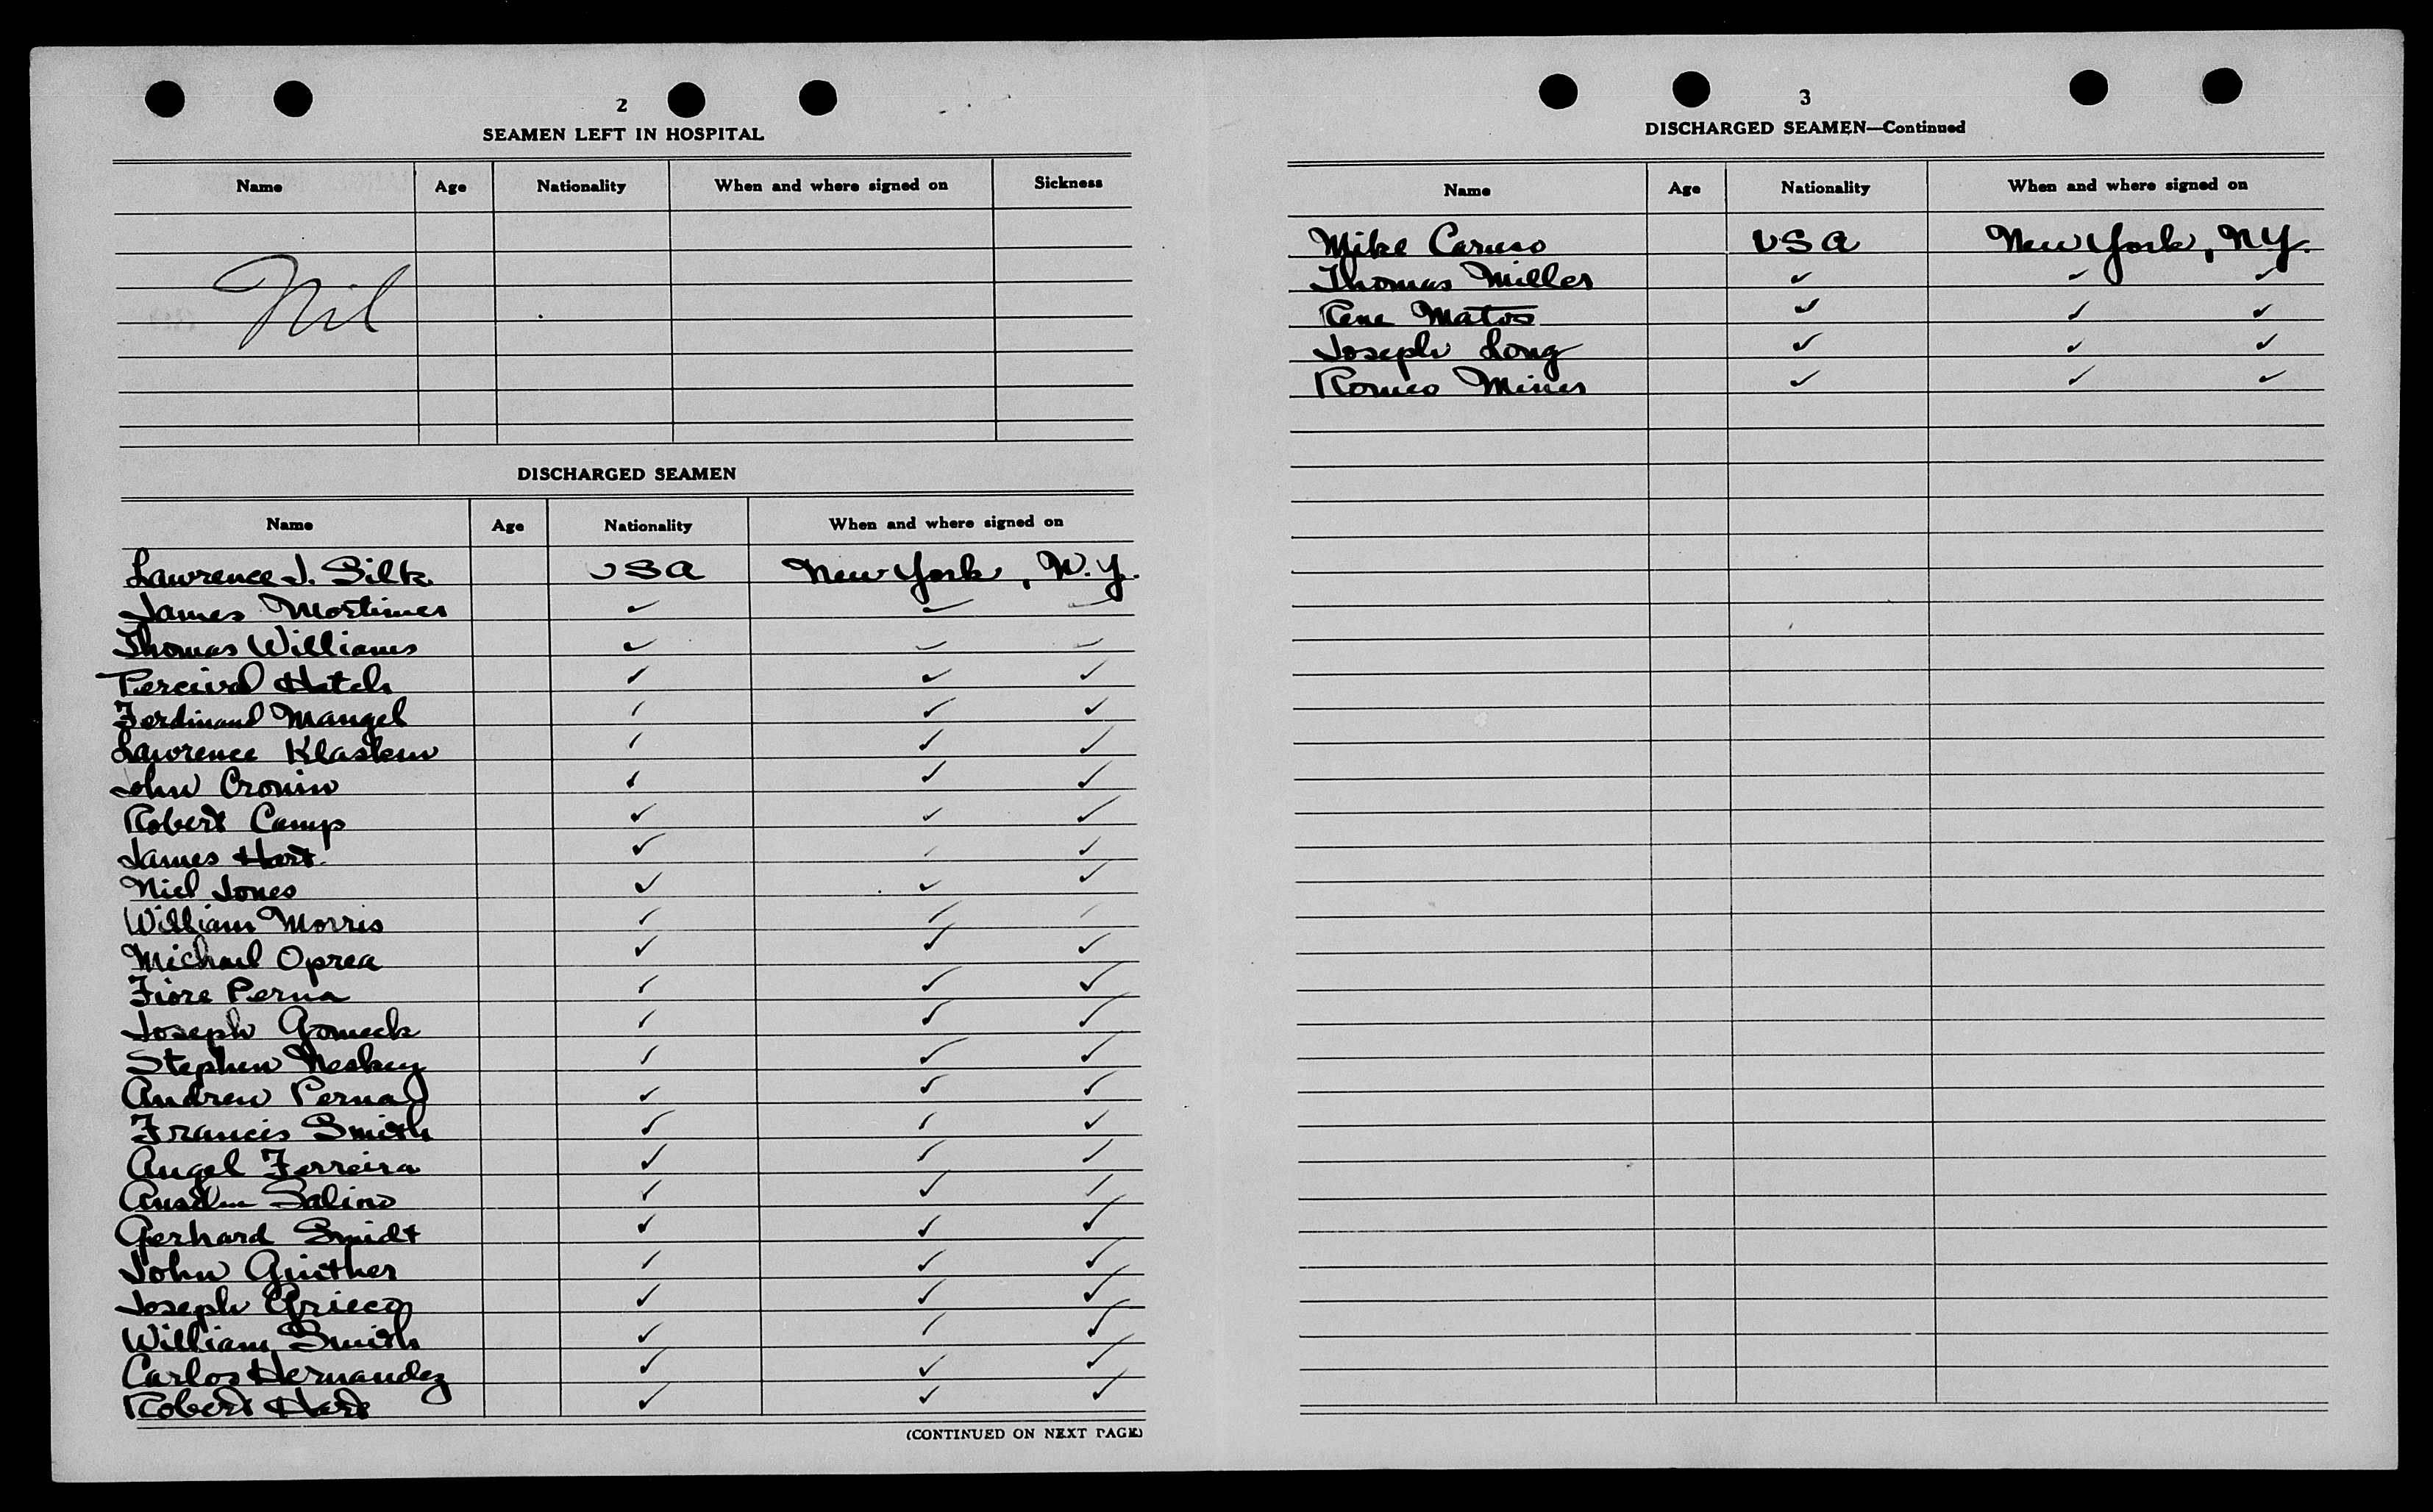 2
SEAMEN LEFT IN HOSPITAL
Name Age Nationality When and where signed on Sickness
Nil
DISCHARGED SEAMEN
Name Age Nationality When and where signed on
Lawrence J. Silk USA New York, N.Y.
James Mortimer ✓ ✓ ✓
Thomas Williams ✓ ✓ ✓
Percival Hatch ✓ ✓ ✓
Ferdinand Mangel ✓ ✓ ✓
Lawrence ✓ ✓ ✓
John Cronin ✓ ✓ ✓
Robert Camp ✓ ✓ ✓
James Hart ✓ ✓ ✓
Niel Jones ✓ ✓ ✓
William Morris ✓ ✓ ✓
Michael Oprea ✓ ✓ ✓
Fiore Perna ✓ ✓ ✓
Joseph Gomeck ✓ ✓ ✓
Stephen Neskey ✓ ✓ ✓
Andrew Pernal ✓ ✓ ✓
Francis Smith ✓ ✓ ✓
Angel Ferreira ✓ ✓ ✓
Anselm Salino ✓ ✓ ✓
Gerhard Smidt ✓ ✓ ✓
John Ginther ✓ ✓ ✓
Joseph Grieco ✓ ✓ ✓
William Smith ✓ ✓ ✓
Carlos Hernandez ✓ ✓ ✓
Robert Hart ✓ ✓ ✓
(CONTINUED ON NEXT PAGE)
3
DISCHARGED SEAMEN—Continued
Name Age Nationality When and where signed on
Mike Caruso USA New York, NY.
Thomas Miller ✓ ✓ ✓
Rene Matos ✓ ✓ ✓
Joseph Long ✓ ✓ ✓
Romeo Miner ✓ ✓ ✓